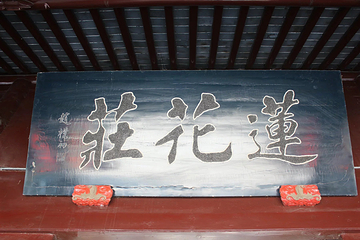 蓮花莊